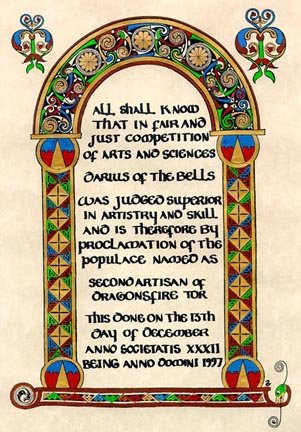 All shall know
that in fair and
just competition
of arts and sciences
Darius of the Bells
was judged superior
in artistry and skill
and is therefore by
proclamation of the
populace named as
second artisan of
Dragonsfire Tor
this done on the 13th
day of December
Anno Societatis XXXII
being Anno Domini 1997